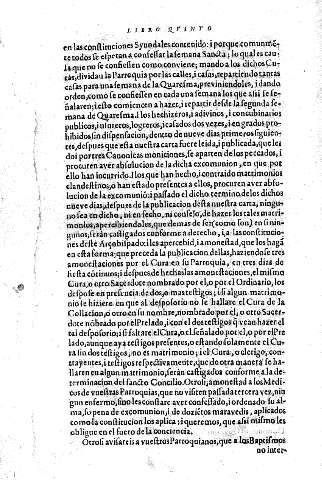 LIBRO QVINTO
en las constituciones Synodales contenido: i porque comunmẽ
te todos se espetan a confessar la semana Sancta; lo qual es cau
sa que no se confiessen como conviene; mando a los dichos Cu
ras, dividan la Parroquia por las calles, i casas, repartiendo tantas
casas para una semana de la Quaresma, previniendoles, i dando
orden, como se confiessen en cada una semana los que assi se se
ñalaren; i esto comiencen a hazer, i repartir desde la segunda se
mana de Quaresma. I los hechizeros, i adivinos, i concubinarios
publicos, i usureros, logreros, i casados dos vezes, i en grados pro
hibidos sin dispensacion, dentro de nueve dias primeros siguien
tes, despues que esta nuestra carta fuere leida, i publicada, que les
doi por tres Canonicas moniciones, se aparten de los pecados, i
procuren aver absolucion de la dicha excomunion, en que por
ello han incurrido. I los que han hecho, i contraido matrimonios
clandestinos, o han estado presentes a ellos, procuren aver abso
lucion de la excomunion: i passado el dicho termino, de los dichos
nueve dias, despues de la publicacion desta nuestra carta, ningu
no sea en dicho, ni en fecho, ni consejo, de hazer los tales matri
monios, apercibiendoles, que demas de ser (como son) en si nin
gunos, serán castigados conforme a derecho, i a las constitucio
nes deste Arçobispado: i los apercebid, i amonestad, que los hagã
en esta forma; que preceda la publicacion dellas, haziendose tres
amonestaciones por el Cura en su Parroquia, en tres dias de
fiesta continuos; i despues de hechas las amonestaciones, el mismo
Cura, o otro Sacerdote nombrado por el, o por el Ordinario, los
despose en presencia de dos, o mas testigos; i si algun matrimo
nio se hiziere en que al desposorio no se hallare el Cura de la
Collacion, o otro en su nombre, nombrado por el, o otro Sacer
dote nõbrado por el Prelado, i con el dos testigos q̃ vean hazer el
tal desposorio; i si faltare el Cura, o el señalado por el, o por el Pre
lado, aunque aya testigos presentes, o estando solamente el Cu
ra sin dos testigos, no es matrimonio; i el Cura, o clerigo, con-
trayentes, i testigos respectivamente, que de otra manera se ha-
llaren en algun matrimonio, serán castigados conforme a la de-
terminacion del sancto Concilio. Otrosi, amonestad a los Medi
cos de vuestras Parroquias, que no visiten passada tercera vez, nin
gun enfermo, sino les constare aver confessado, i ordenado su al
ma, so pena de excomunion, i de dozientos maravedis, aplicados
como la constitucion los aplica; i queremos, que assi mismo les
obligue en el fuero de la conciencia.
Otrosi avisareis a vuestros Parroquianos, que a los Baptismos
no inter-